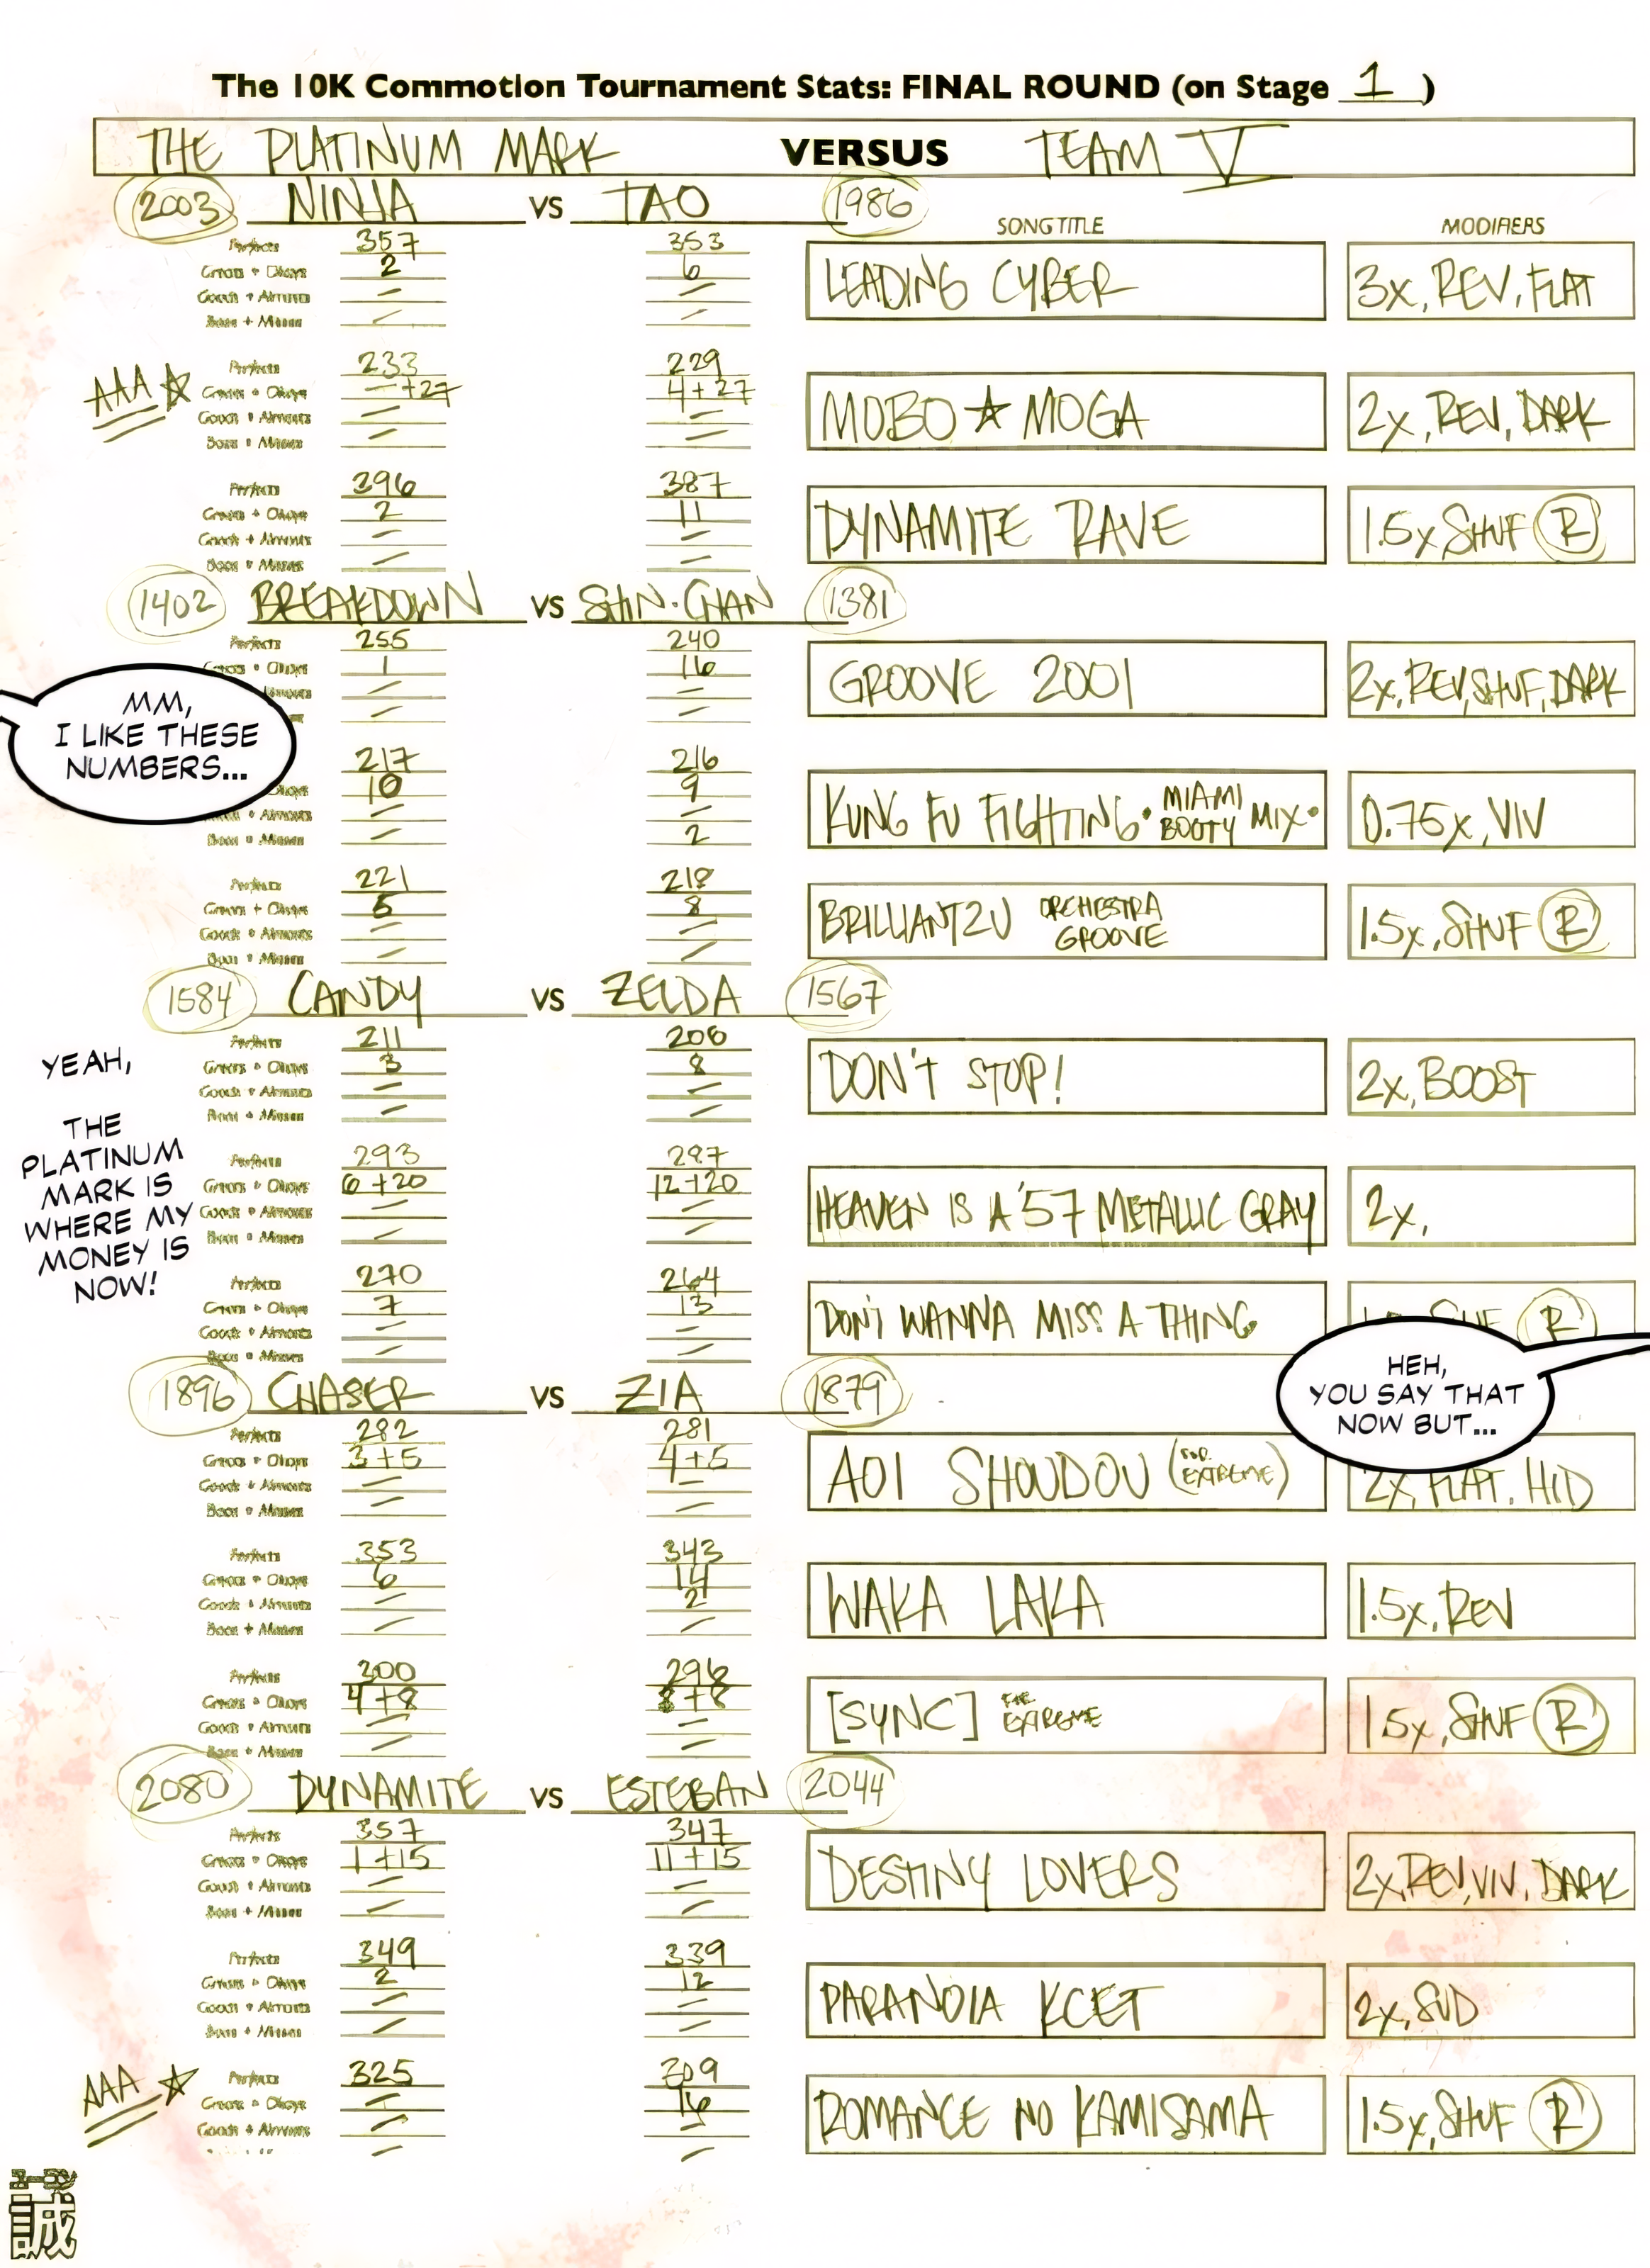 The 10K Commotion Tournament Stats: FINAL ROUND (on Stage 1)
THE PLATINUM MARK VERSUS TEAM V
2003 NINJA VS TAO 1986
SONG TITLE MODIFIERS
Perfects 357 353
Greats + Okays 2 6
LEADING CYBER 3x, REV, FLAT
Goods + Almosts – –
Boos + Misses – –
AAA ☆
Perfects 233 229
Greats + Okays – +27 4+27
MOBO ★ MOGA 2x, REV, DARK
Goods + Almosts – –
Boos + Misses – –
Perfects 396 387
Greats + Okays 2 11
DYNAMITE RAVE 1.5x, SHUF R
Goods + Almosts – –
Boos + Misses – –
1402 BREAKDOWN VS SHIN·CHAN 1381
Perfects 255 240
Greats + Okays 1 16
GROOVE 2001 2x, REV, SHUF, DARK
Almosts – –
– –
MM,
I LIKE THESE
NUMBERS...
217 216
Okays 10 9
KUNG FU FIGHTING · MIAMI BOOTY MIX · 0.75x, VIV
+ Almosts – –
Boos + Misses – 2
Perfects 221 218
Greats + Okays 5 8
BRILLIANT2U ORCHESTRA GROOVE 1.5x, SHUF R
Goods + Almosts – –
Boos + Misses – –
1584 CANDY VS ZELDA 1567
Perfects 211 206
Greats + Okays 3 8
DON'T STOP! 2x, BOOST
Goods + Almosts – –
Boos + Misses – –
YEAH,
THE
PLATINUM
MARK IS
WHERE MY
MONEY IS
NOW!
Perfects 293 287
Greats + Okays 6+20 12+20
HEAVEN IS A '57 METALLIC GRAY 2x,
Goods + Almosts – –
Boos + Misses – –
Perfects 270 264
Greats + Okays 7 13
DON'T WANNA MISS A THING SHUF R
Goods + Almosts – –
Boos + Misses – –
HEH,
YOU SAY THAT
NOW BUT...
1896 CHASER VS ZIA 1879
Perfects 282 281
Greats + Okays 3+5 4+5
AOI SHOUDOU (FOR EXTREME) 2x, FLAT, HID
Goods + Almosts – –
Boos + Misses – –
Perfects 353 343
Greats + Okays 6 14
WAKA LAKA 1.5x, REV
Goods + Almosts – 2
Boos + Misses – –
Perfects 200 296
Greats + Okays 4+8 8+8
[SYNC] FOR EXTREME 1.5x, SHUF R
Goods + Almosts – –
Boos + Misses – –
2080 DYNAMITE VS ESTEBAN 2044
Perfects 357 347
Greats + Okays 1+15 11+15
DESTINY LOVERS 2x, REV, VIV, DARK
Goods + Almosts – –
Boos + Misses – –
Perfects 349 339
Greats + Okays 2 12
PARANOIA KCET 2x, SUD
Goods + Almosts – –
Boos + Misses – –
AAA ☆
Perfects 325 309
Greats + Okays – 16
ROMANCE NO KAMISAMA 1.5x, SHUF R
Goods + Almosts – –
– –
誠